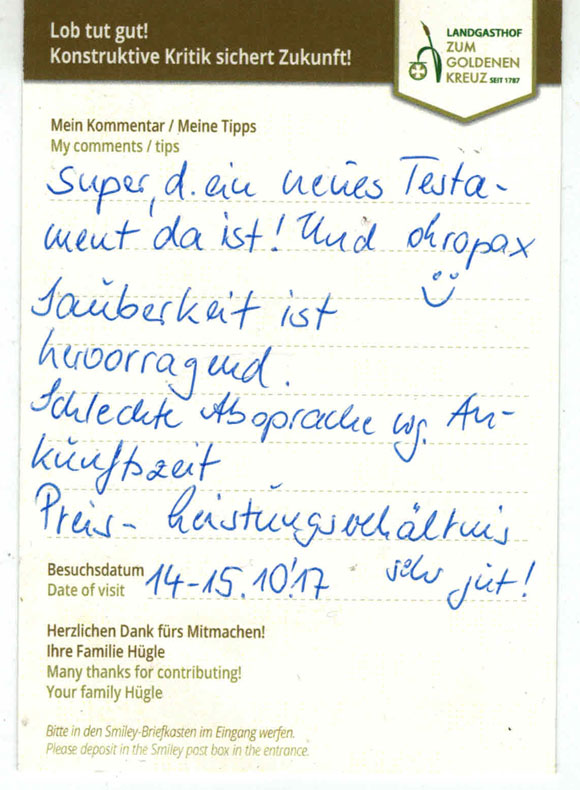 Lob tut gut!
Konstruktive Kritik sichert Zukunft!
LANDGASTHOF
ZUM
GOLDENEN
KREUZ SEIT 1787
Mein Kommentar / Meine Tipps
My comments / tips
Super, d. ein neues Testa-
ment da ist! Und ohropax
Sauberkeit ist
hervorragend.
Schlechte Absprache wg. An-
kunftszeit
Preis- Leistungsverhältnis
sehr gut!
Besuchsdatum
Date of visit
14-15.10.'17
Herzlichen Dank fürs Mitmachen!
Ihre Familie Hügle
Many thanks for contributing!
Your family Hügle
Bitte in den Smiley-Briefkasten im Eingang werfen.
Please deposit in the Smiley post box in the entrance.